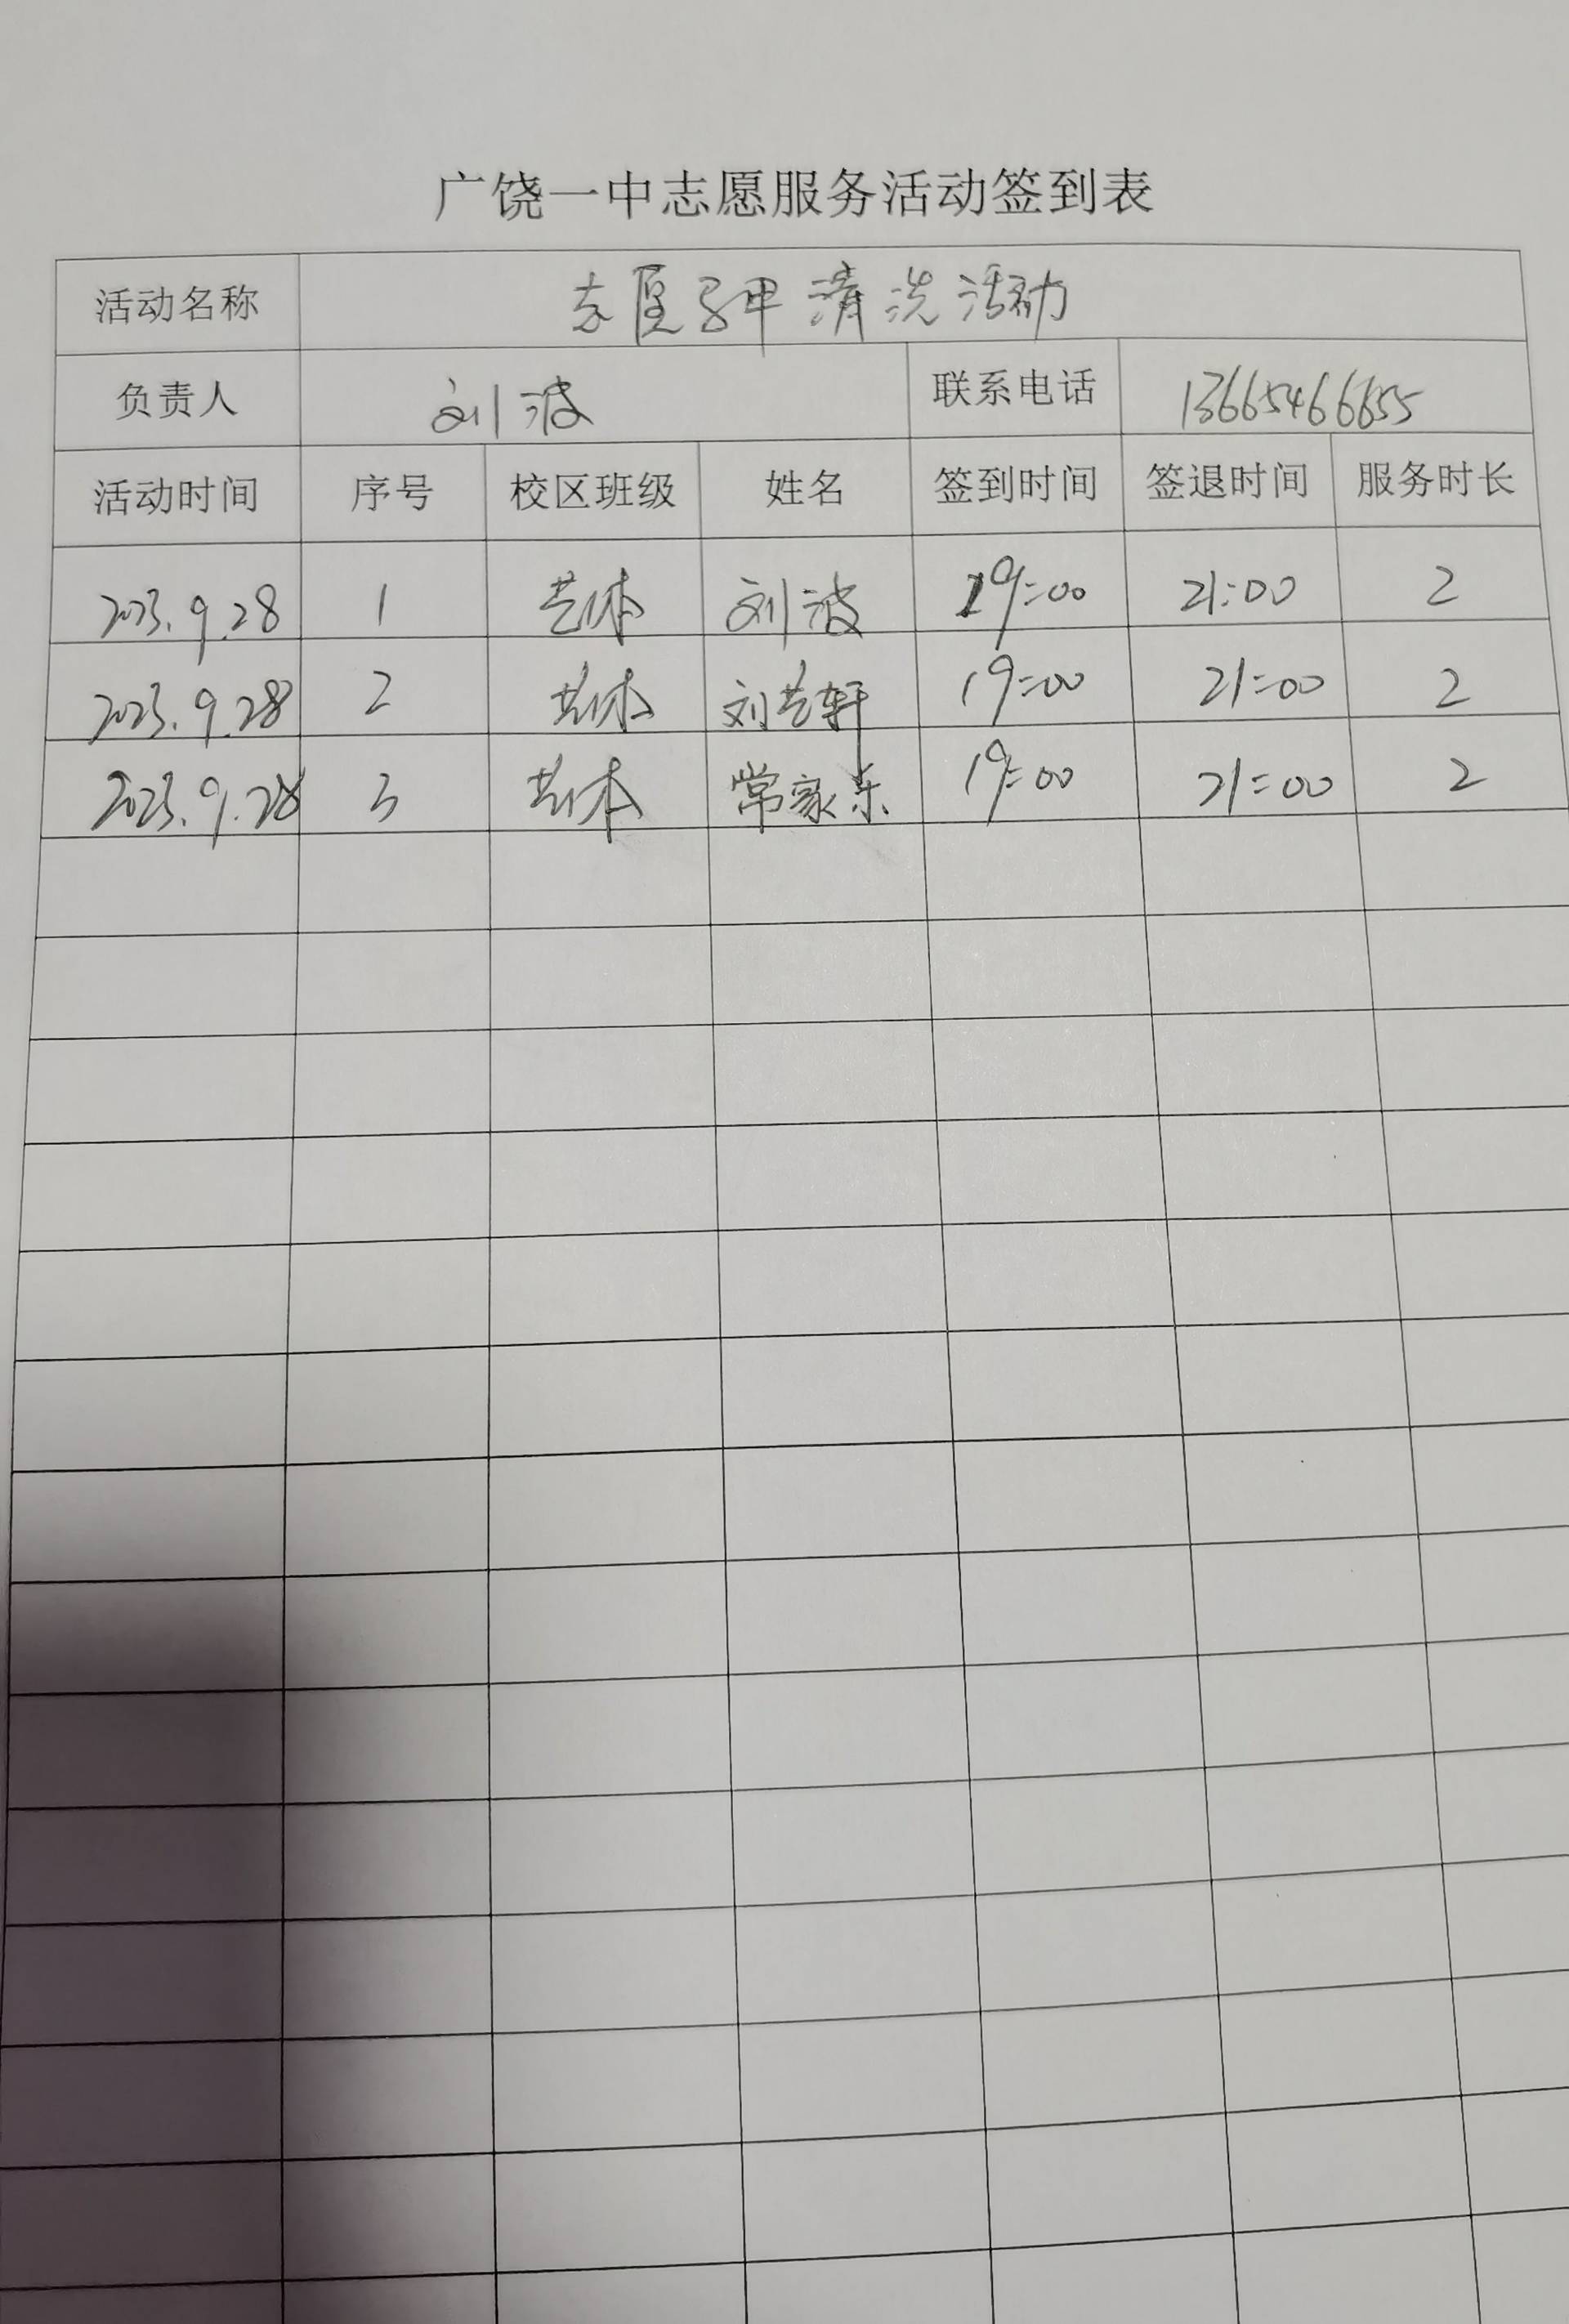 广饶一中志愿服务活动签到表
活动名称 志愿马甲清洗活动
负责人 刘波 联系电话 13665466655
活动时间 序号 校区班级 姓名 签到时间 签退时间 服务时长
2023.9.28 1 艺体 刘波 19:00 21:00 2
2023.9.28 2 艺体 刘艺轩 19:00 21:00 2
2023.9.28 3 艺体 常家乐 19:00 21:00 2